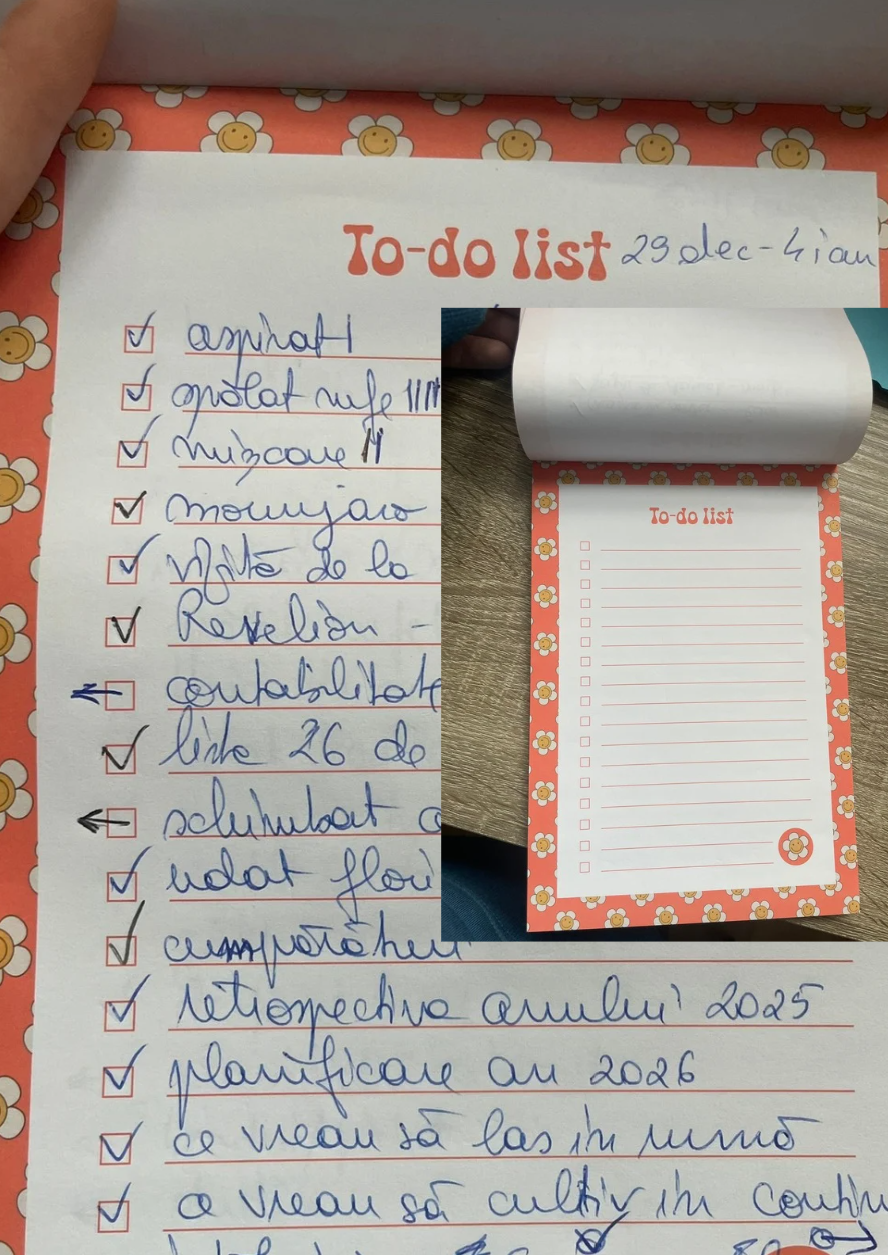 To-do list 29 dec - 4 ian
aspirat I
spălat rufe IIII
mișcare II
mounjaro
vizită de la
Revelion -
contabilitate
liste 26 de
schimbat
udat flori
cumpărături
retrospectiva anului 2025
planificare an 2026
ce vreau să las în urmă
ce vreau să cultiv în
To-do list